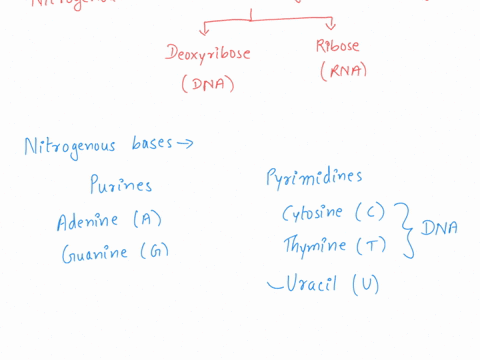 Nitrogenous
Deoxyribose
(DNA)
Ribose
(RNA)
Nitrogenous bases →
Purines
Adenine (A)
Guanine (G)
Pyrimidines
Cytosine (C)
Thymine (T)
DNA
Uracil (U)